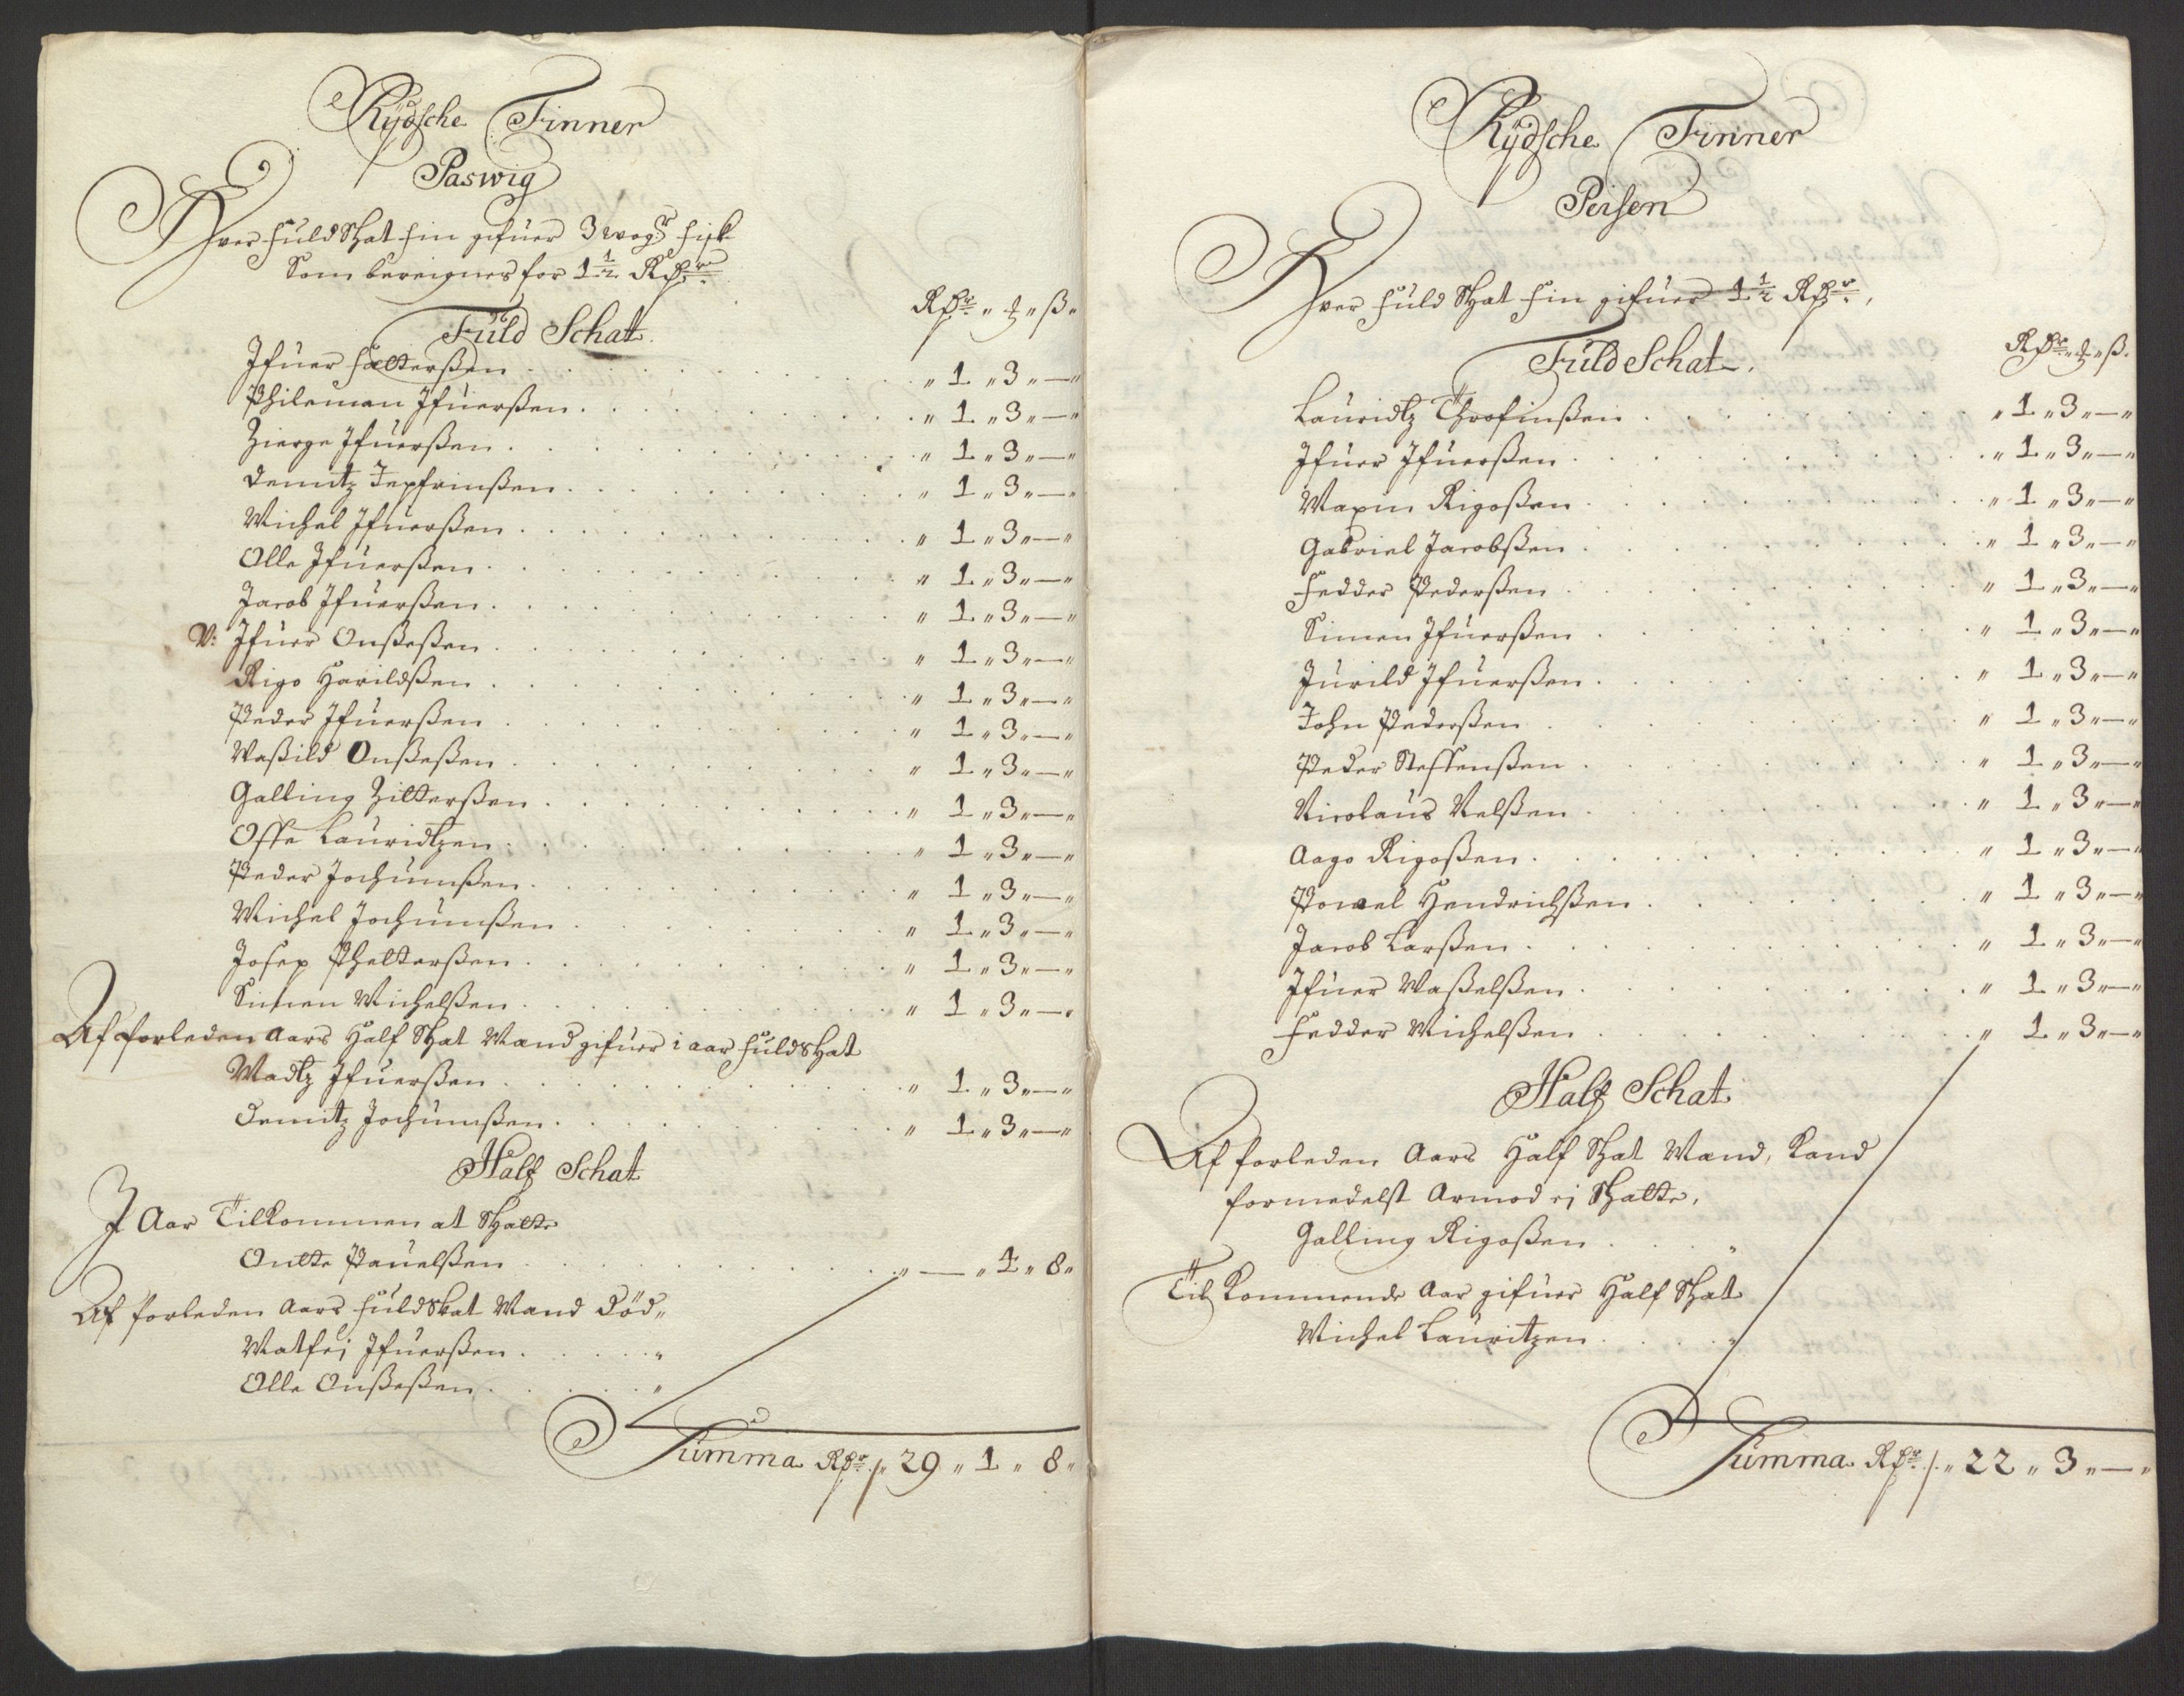 Rydsche Finner
Paswig
Hver fuld Skat fin gifuer 3 wogr fisk
Som bereignes for 1½ Rdr
Rdr " ₰ " ß "
Fuld Schat
Ifuer Hælterßen " 1 " 3 " — "
Phileman Ifuerßen " 1 " 3 " — "
Zierge Ifuerßen " 1 " 3 " — "
Demitz Jepfrinßen " 1 " 3 " — "
Michel Ifuerßen " 1 " 3 " — "
Olle Ifuerßen " 1 " 3 " — "
Jacob Ifuerßen " 1 " 3 " — "
N: Ifuer Onßeßen " 1 " 3 " — "
Rigo Harildßen " 1 " 3 " — "
Peder Ifuerßen " 1 " 3 " — "
Waßild Onßeßen " 1 " 3 " — "
Galling Zilterßen " 1 " 3 " — "
Offe Lauridtzen " 1 " 3 " — "
Peder Jochumßen " 1 " 3 " — "
Michel Jochumßen " 1 " 3 " — "
Josep Phelterßen " 1 " 3 " — "
Simen Michelßen " 1 " 3 " — "
Af forleden Aars Half Skat Mand gifuer i aar fuld skat
Madtz Ifuerßen " 1 " 3 " — "
Demitz Jochumßen " 1 " 3 " — "
Half Schat
I Aar Tilkommen at Skatte
Ontte Pauelßen " — " 1 " 8 "
Af forleden Aars fuld Skat Mand Död "
Matfej Ifuerßen "
Olle Onßeßen "
Summa Rdr /. 29 " 1 " 8 "
Rydsche Finner
Peisen
Hver fuld Skat fin gifuer 1½ Rdr,
Rdr " ₰ " ß
Fuld Schat
Lauridtz Throfinßen " 1 " 3 " — "
Ifuer Ifuerßen " 1 " 3 " — "
Maxin Rigoßen " 1 " 3 " — "
Gabriel Jacobßen " 1 " 3 " — "
Fedder Pederßen " 1 " 3 " — "
Simen Ifuerßen " 1 " 3 " — "
Jurild Ifuerßen " 1 " 3 " — "
John Pederßen " 1 " 3 " — "
Peder Steffenßen " 1 " 3 " — "
Nicolaus Nelßen " 1 " 3 " — "
Aago Rigoßen " 1 " 3 " — "
Powel Hendrichßen " 1 " 3 " — "
Jacob Larßen " 1 " 3 " — "
Ifuer Waßelßen " 1 " 3 " — "
Fedder Michelßen " 1 " 3 " — "
Half Schat
Af forleden Aars Half Skat Mand, kand
formedelst Armod ej Skatte,
Galling Rigoßen "
Til Kommende Aar gifuer Half Skat
Michel Lauritzen "
Summa Rdr /. " 22 " 3 " — "